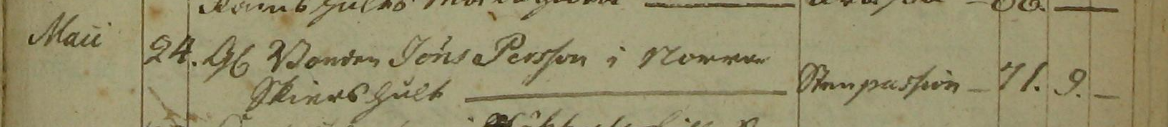 Maii 24. Gl. Bonden Jöns Persson i Norra
Skiershult Stenpassion 71. 9.